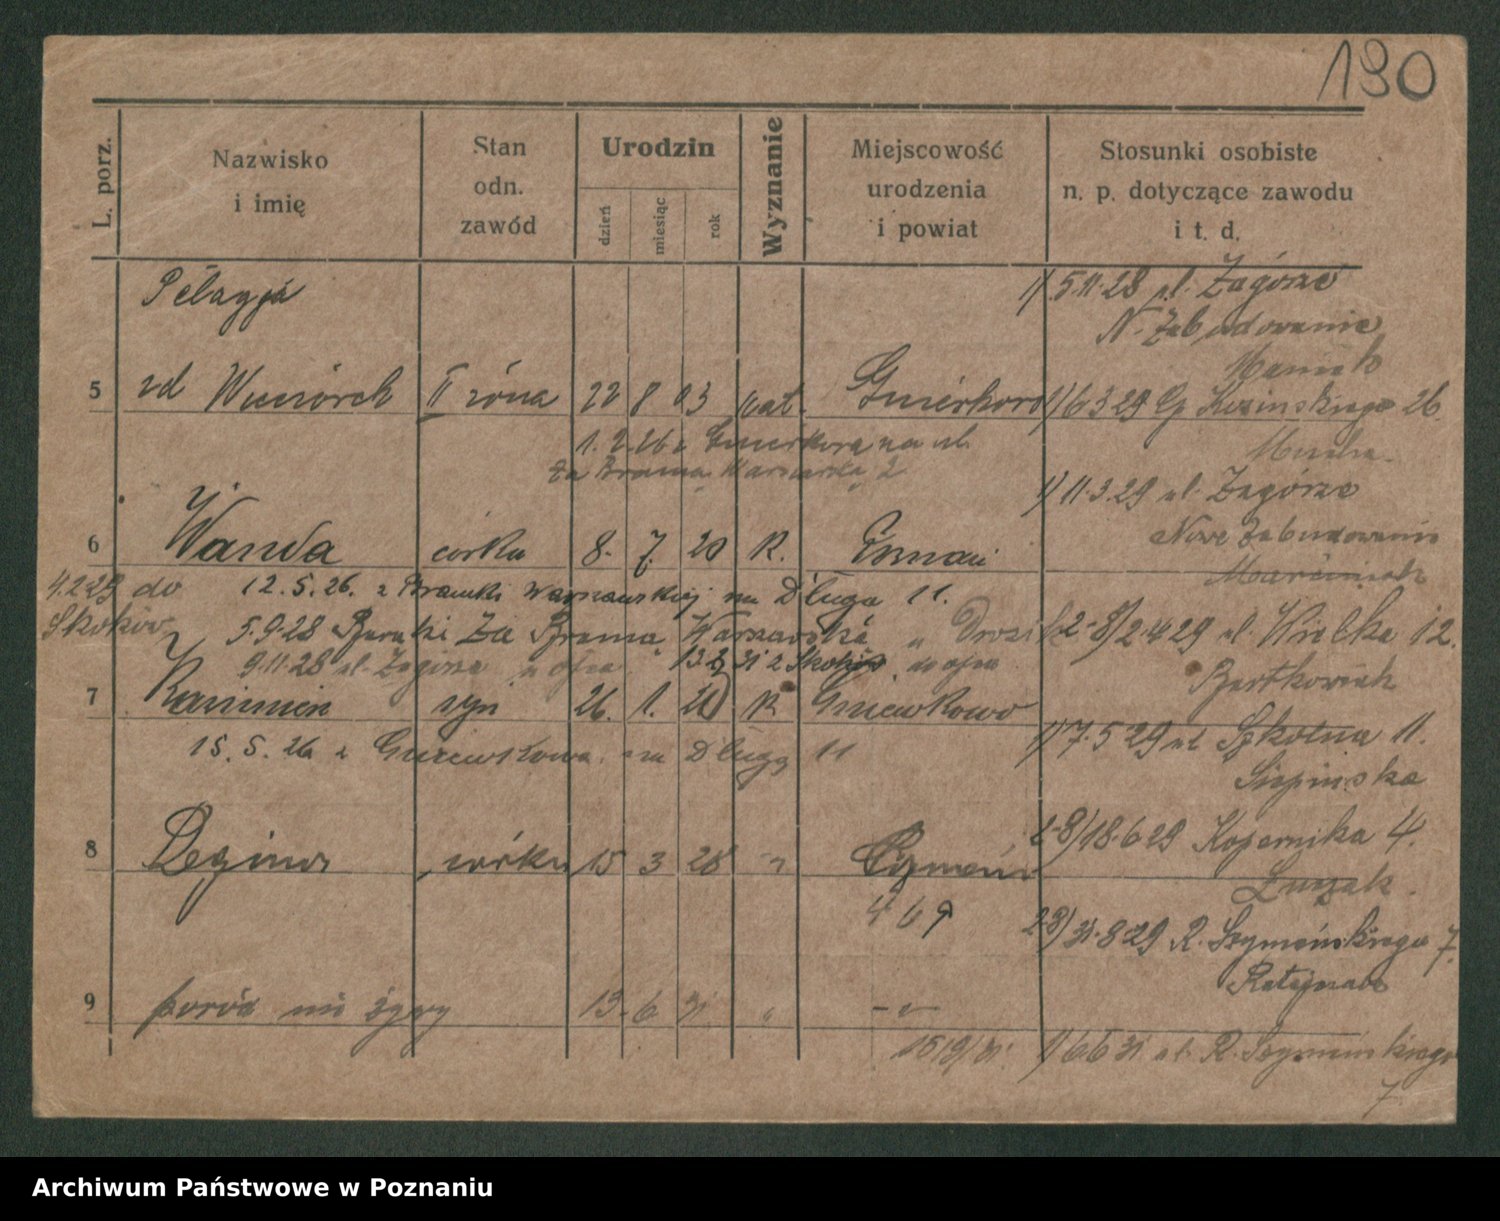 190
L. porz.
Nazwisko i imię
Stan odn. zawód
Urodzin
dzień
miesiąc
rok
Wyznanie
Miejscowość urodzenia i powiat
Stosunki osobiste n. p. dotyczące zawodu i t. d.
Pelagja
1/ 5.11.28 ul. Zagórze
N. Zabudowanie
5 zd II żona 22 8 03 kat.
1/ 6 3 29 26
1. 2. 26 z na ul.
Za Bramą Warszawską 2
1/ 11.3.29 ul. Zagórze
Nowe Zabudowanie
6 Wanda córka 8. 7. 20 R. Poznań
Marciniak
4.2.29 do Skoków
12. 5. 26. z Bramki Warszawskiej na Długa 11.
5.9.28 Za Bramą Warszawską
2-8/ 2.4.29 ul. Wielka 12.
9.11.28 ul. Zagórze z ojca 31 z Skoków do ojca
Bartkowiak
7 Kazimierz syn 26. 1. R Gniewkowo
15. 5. 26 z Gniewkowa na Długą 11
1/ 7.5 29 ul Szkolna 11.
Siepińska
8 Regina córka 15 3 28 "
2-8/ 18.6 29 Kopernika 4.
Luczak.
4 6 9
2-8/ 31.8.29 R. Szymańskiego 7.
Ratajczak
9 poród nie żywy 13. 6 31 " - " -
15/9/31.
1/ 6 6 31 ul. R. Szymańskiego
7.
Archiwum Państwowe w Poznaniu